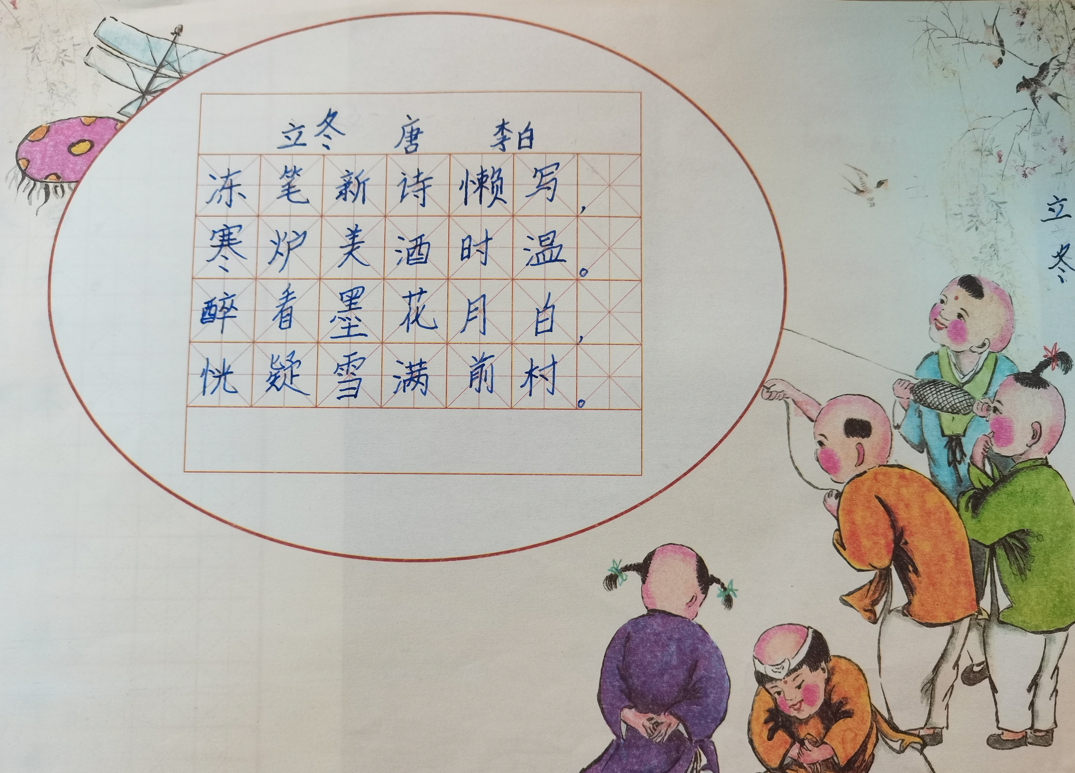 立冬 唐 李白
冻笔新诗懒写，
寒炉美酒时温。
醉看墨花月白，
恍疑雪满前村。
立冬